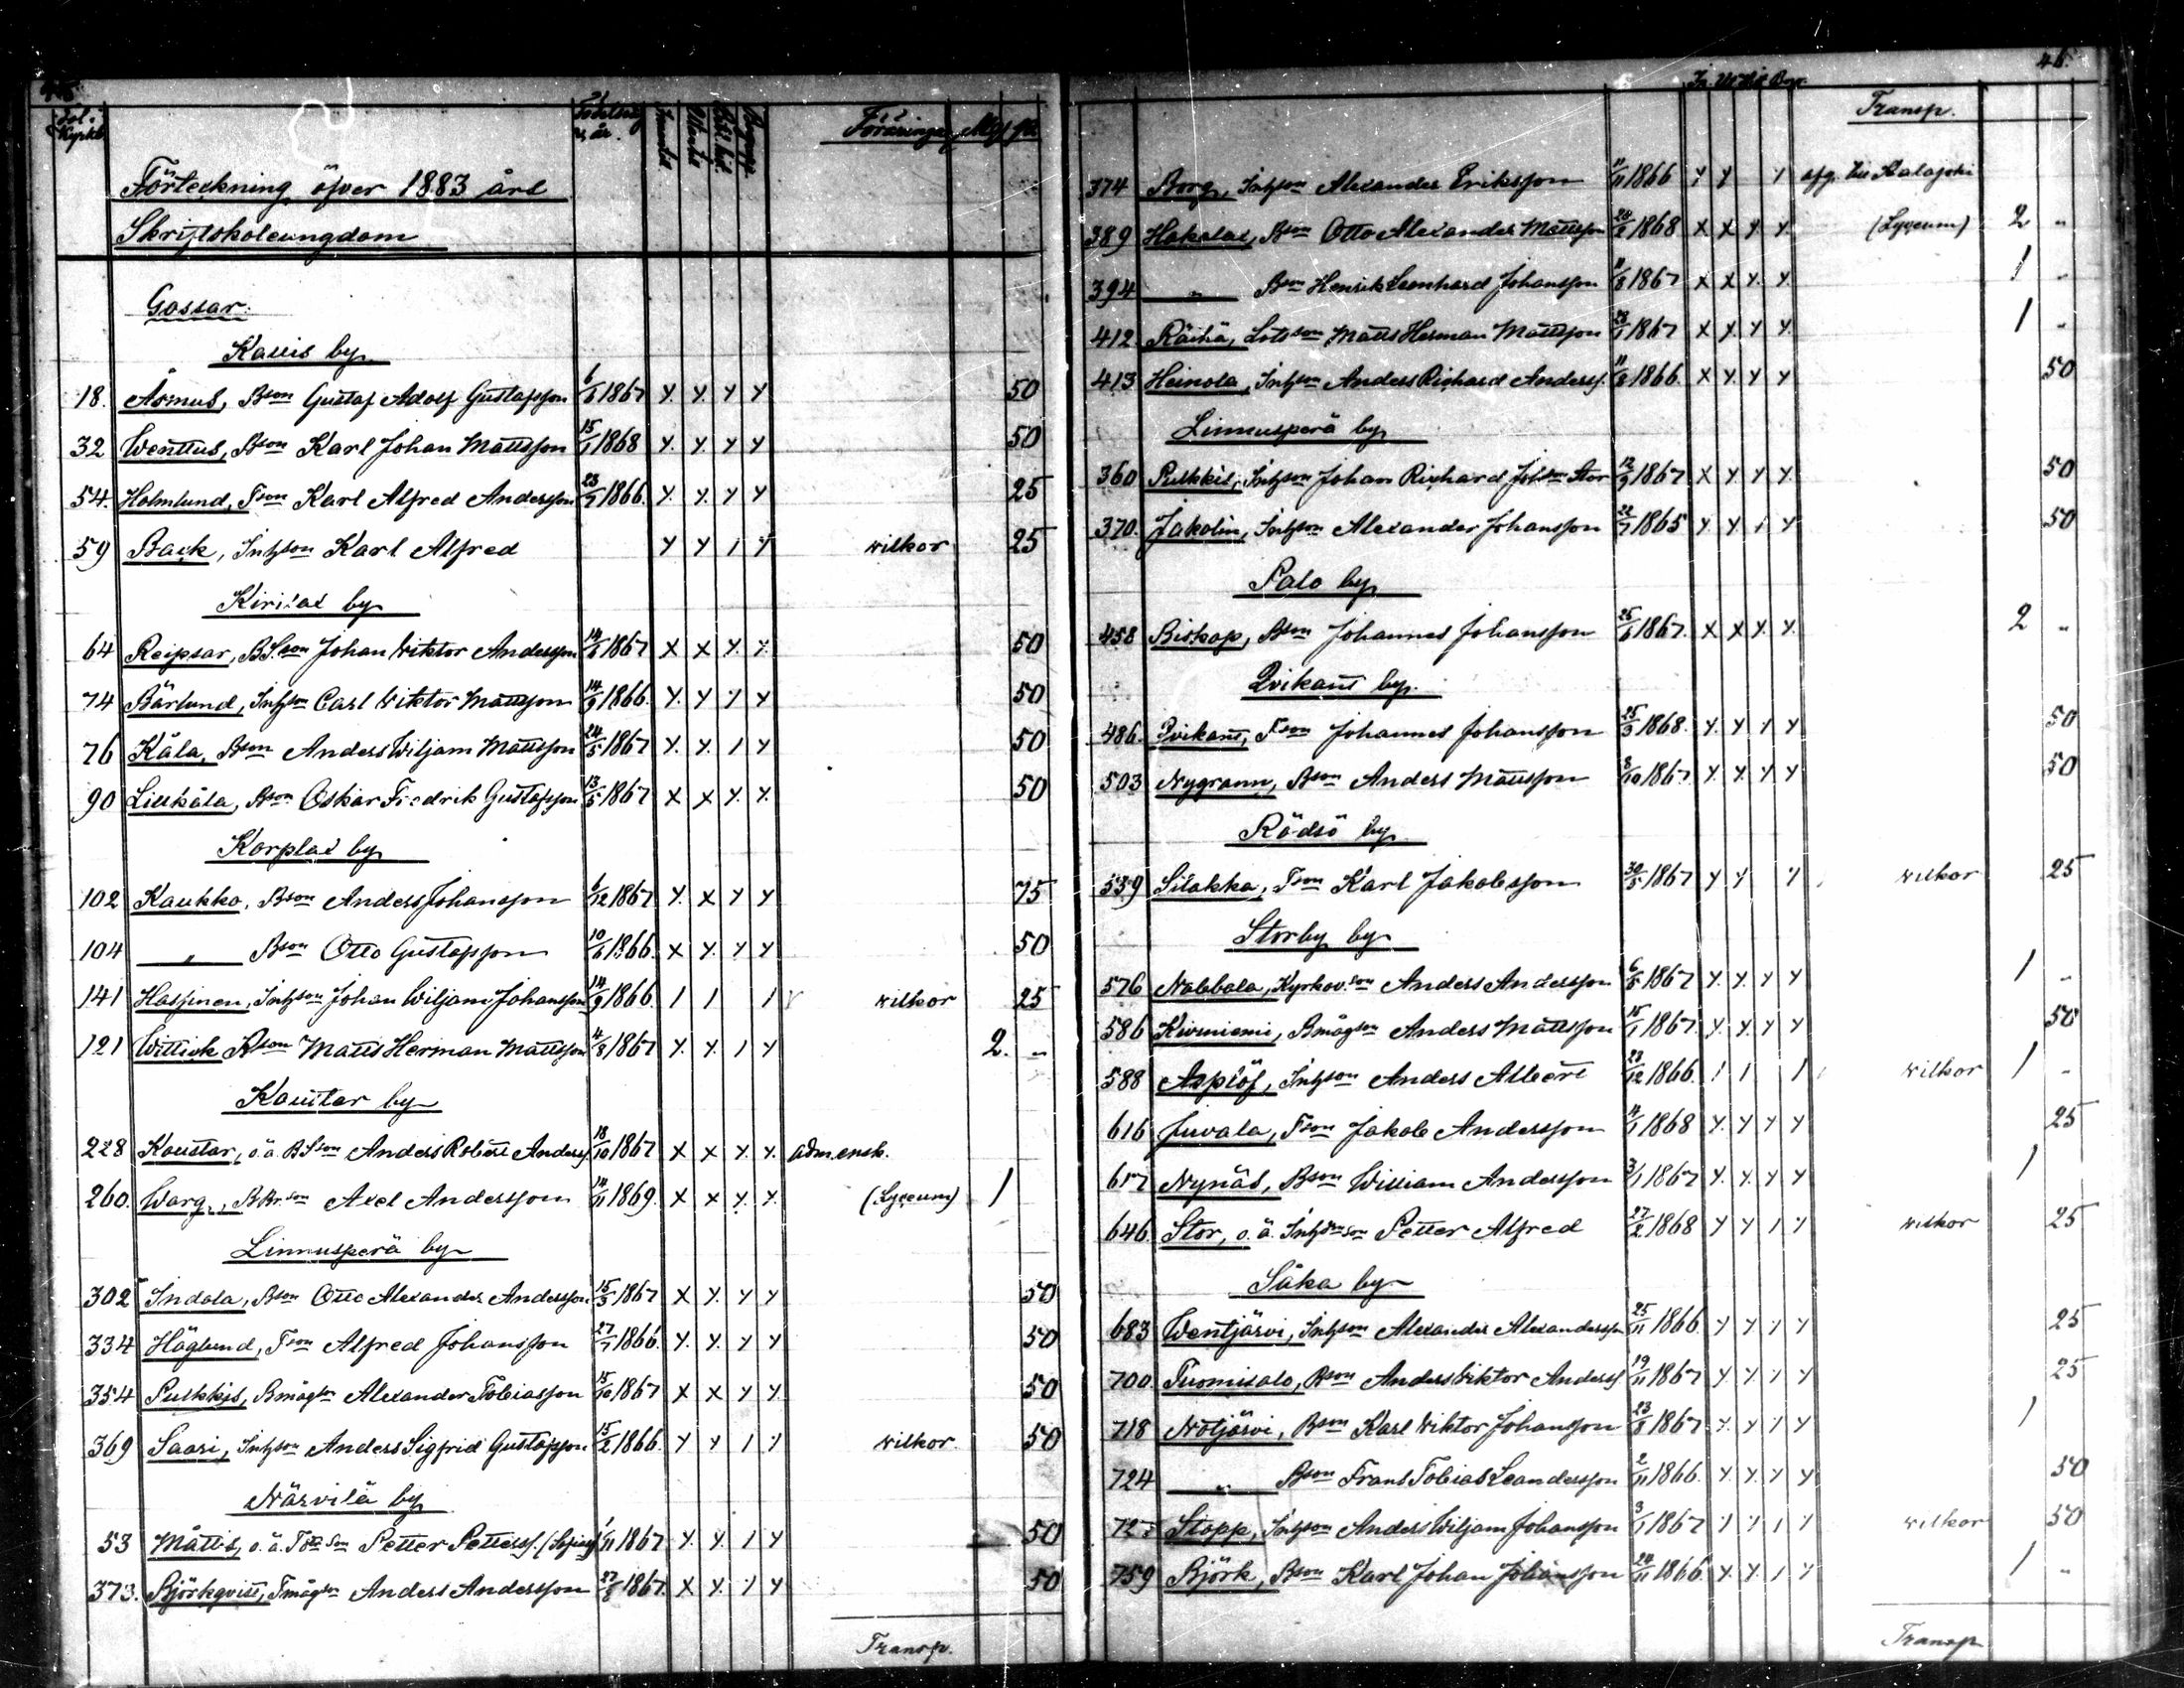 45.
Fol. i Kyrkb. Födelsedag & år. Innantill Utantill Begrepp Föräringar Mk pi
Förteckning öfver 1883 års
Skriftskoleungdom
Gossar.
Kallis by
18. Åsmus, Bson Gustaf Adolf Gustafsson 6/6 1867 x x x x 50
32 Wenttus, Bson Karl Johan Mattsson 15/1 1868 x x x x 50
54. Holmlund, Tson Karl Alfred Andersson 23/7 1866. x x x x 25
59 Back, Inhson Karl Alfred x x / x wilkor 25
Kirilax by
64 Reipsar, BSson Johan Wiktor Andersson 14/6 1867 x x x x 50
74 Bärlund, Inhson Carl Wiktor Mattsson 14/9 1866. x x x x 50
76 Kåla, Bson Anders Wiljam Mattsson 24/5 1867 x x / x 50
90 Lillkåla, Bson Oskar Fredrik Gustafsson 13/5 1867 x x x x 50
Korplax by
102 Kaukko, Bson Anders Johansson 6/12 1867 x x x x 75
104 " Bson Otto Gustafsson 10/6 1866. x x x x 50
141 Hassinen, Inhson Johan Wiljam Johansson 14/9 1866 / / / wilkor 25
121 Wittick Bson Matts Herman Mattsson 4/8 1867 x x / x 2. "
Koustar by
228 Koustar, o.ä. BSson Anders Robert Anderss. 18/10 1867 x x x x adm. ensk.
260. Warg, Axel Andersson 14/11 1869. x x x x (Lyceum) 1
Linnusperä by
302 Indola, Bson Otto Alexander Andersson 15/3 1867 x x x x 50
334 Höglund, Tson Alfred Johansson 27/7 1866. x x x x 50
354 Pulkkis, Bmågson Alexander Tobiasson 15/10 1867 x x x x 50
369 Saari, Inhson Anders Sigfrid Gustafsson 15/2 1866. x x / x wilkor. 50
Närvilä by
53 Måttis, o.ä. Petter Petterss. 1/11 1867 x x / x 50
373. Björkqvist, Tmågson Anders Andersson 27/8 1867. x x / x 50
Transp.
46.
In. Ut. Bgr.
Transp.
374 Borg, Inhson Alexander Eriksson 11/11 1866 x x x afg. till Kalajoki
389 Hakalax, Bson Otto Alexander Mattsson 1868 x x x x (Lyceum) 2 "
394 " Bson Henrik Leonhard Johansson 11/8 1867 x x x x 1 "
412. Räihä, Lotsson Matts Herman Mattsson 1867 x x x x 1 "
413 Heinola, Inhson Anders Richard Anderss. 11/8 1866. x x x x 50
Linnusperä by
360 Pulkkis, Inhson Johan Richard Johsson Stor 12/9 1867 x x x x 50
370. Jakolin, Inhson Alexander Johansson 22/7 1865 x x / x 50
Palo by
458 Biskop, Bson Johannes Johansson 25/6 1867. x x x x 2 "
Qvikant by.
486. Qvikant, Tson Johannes Johansson 25/3 1868. x x / x 50
503 Nygrann, Bson Anders Mattsson 8/10 1867 x x x x 50
Rödsö by
539 Silakka, Tson Karl Jakobsson 30/5 1867 x x x wilkor 25
Storby by
576 Nabbala, Kyrkov.son Anders Andersson 6/5 1867 x x x x 1 "
586 Kivniemi, Bmågson Anders Mattsson 15/1 1867 x x x x 50
588 Asplöf, Inhson Anders Albert 23/12 1866. / / / wilkor 1 "
616 Juvala, Tson Jakob Andersson 4/1 1868 x x x x 25
617 Nynäs, Bson William Andersson 3/1 1867 x x x x 1
646. Stor, o.ä. Inhson Petter Alfred 27/2 1868 x x / x wilkor 25
Såka by
683 Wentjärvi, Inhson Alexander Alexandersson 25/11 1866. x x / x 25
700. Tuomisalo, Bson Anders Viktor Anderss. 19/11 1867 x x / x 25
718 Nötjärvi, Bson Karl Wiktor Johansson 23/8 1867 x x / x 1
724 " Bson Frans Tobias Leandersson 2/11 1866. x x x x 50
Stopp, Inhson Anders Wiljam Johansson 3/1 1867 / x / x wilkor 50
759 Björk, Bson Karl Johan Johansson 24/11 1866. x x / x 1 "
Transp